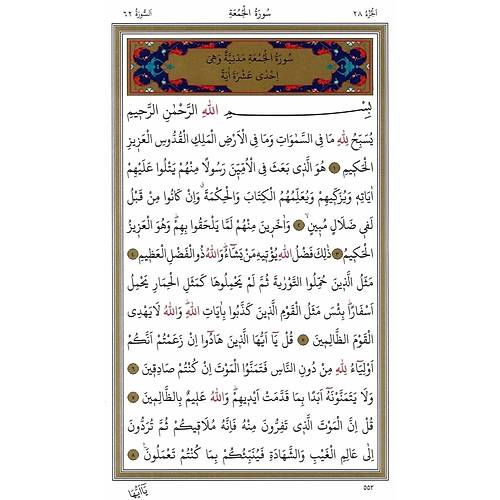 اَلْجُزْءُ ٢٨
سُورَةُ الْجُمُعَةِ
اَلسُّورَةُ ٦٢
سُورَةُ الْجُمُعَةِ مَدَنِيَّةٌ وَهِيَ
اِحْدٰى عَشْرَةَ اٰيَةً
بِسْمِ اللهِ الرَّحْمٰنِ الرَّحِيمِ
يُسَبِّحُ لِلّٰهِ مَا فِي السَّمٰوَاتِ وَمَا فِي الْاَرْضِ الْمَلِكِ الْقُدُّوسِ الْعَزِيزِ
الْحَكِيمِ ١ هُوَ الَّذِي بَعَثَ فِي الْاُمِّيّنَ رَسُولًا مِنْهُمْ يَتْلُوا عَلَيْهِمْ
اٰيَاتِهِ وَيُزَكِّيهِمْ وَيُعَلِّمُهُمُ الْكِتَابَ وَالْحِكْمَةَ وَاِنْ كَانُوا مِنْ قَبْلُ
لَفِي ضَلَالٍ مُبِينٍ ٢ وَاٰخَرِينَ مِنْهُمْ لَمَّا يَلْحَقُوا بِهِمْ وَهُوَ الْعَزِيزُ
الْحَكِيمُ ٣ ذٰلِكَ فَضْلُ اللهِ يُؤْتِيهِ مَنْ يَشَاءُ وَاللهُ ذُو الْفَضْلِ الْعَظِيمِ ٤
مَثَلُ الَّذِينَ حُمِّلُوا التَّوْرٰيةَ ثُمَّ لَمْ يَحْمِلُوهَا كَمَثَلِ الْحِمَارِ يَحْمِلُ
اَسْفَارًا بِئْسَ مَثَلُ الْقَوْمِ الَّذِينَ كَذَّبُوا بِاٰيَاتِ اللهِ وَاللهُ لَا يَهْدِي
الْقَوْمَ الظَّالِمِينَ ٥ قُلْ يَا اَيُّهَا الَّذِينَ هَادُوا اِنْ زَعَمْتُمْ اَنَّكُمْ
اَوْلِيَاءُ لِلّٰهِ مِنْ دُونِ النَّاسِ فَتَمَنَّوُا الْمَوْتَ اِنْ كُنْتُمْ صَادِقِينَ ٦
وَلَا يَتَمَنَّوْنَهُ اَبَدًا بِمَا قَدَّمَتْ اَيْدِيهِمْ وَاللهُ عَلِيمٌ بِالظَّالِمِينَ ٧
قُلْ اِنَّ الْمَوْتَ الَّذِي تَفِرُّونَ مِنْهُ فَاِنَّهُ مُلَاقِيكُمْ ثُمَّ تُرَدُّونَ
اِلٰى عَالِمِ الْغَيْبِ وَالشَّهَادَةِ فَيُنَبِّئُكُمْ بِمَا كُنْتُمْ تَعْمَلُونَ ٨
٥٥٢
يَا اَيُّهَا